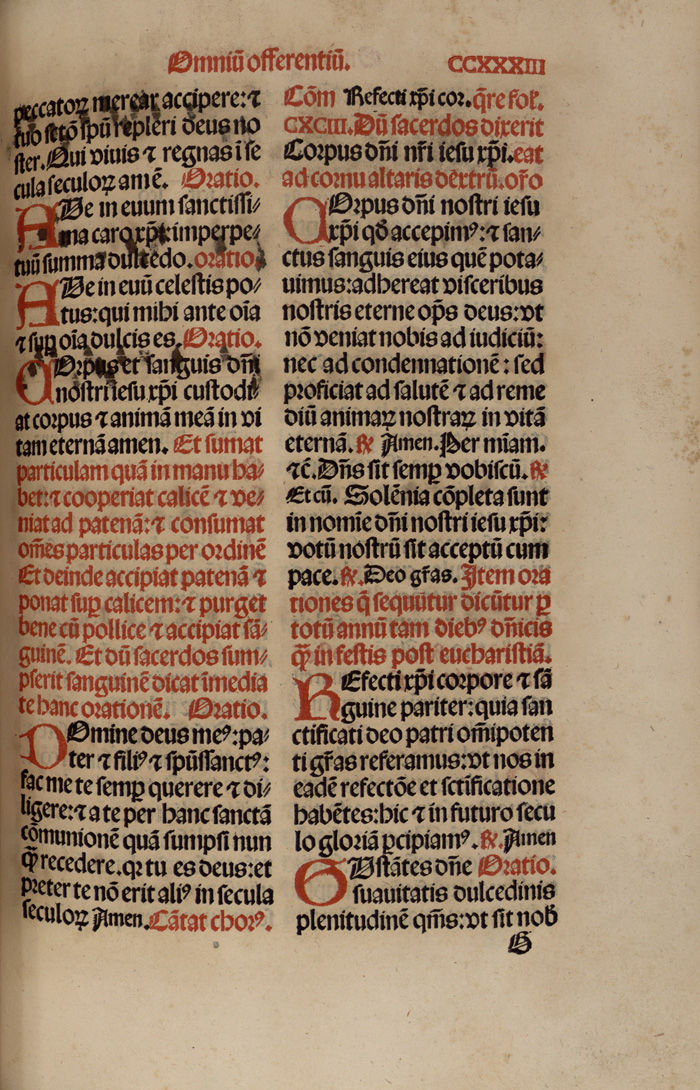 Omniū offerentiū. CCXXXIII
peccatoꝝ merear accipere: ⁊
tuo sctō spū repleri deus no
ster. Qui viuis ⁊ regnas ī se
cula seculoꝝ amē. Oratio.
AUe in euum sanctissi⸗
ma caro xp̄i: imperpe⸗
tuū summa dulcedo. oratio
AUe in euū celestis po⸗
tus: qui mihi ante oīa
⁊ suꝑ oīa dulcis es. Oratio.
COrpus et sanguis dn̄i
nostri iesu xp̄i custodi
at corpus ⁊ animā meā in vi
tam eternā amen. Et sumat
particulam quā in manu ha⸗
bet: ⁊ cooperiat calicē ⁊ ve⸗
niat ad patenā: ⁊ consumat
om̄es particulas per ordinē
Et deinde accipiat patenā ⁊
ponat suꝑ calicem: ⁊ purget
bene cū pollice ⁊ accipiat sā⸗
guinē. Et dū sacerdos sum⸗
pserit sanguinē dicat īmedia
te hanc orationē. Oratio.
DOmine deus meꝰ: pa⸗
ter ⁊ filiꝰ ⁊ spūssanctꝰ:
fac me te semꝑ querere ⁊ di⸗
ligere: ⁊ a te per hanc sanctā
cōmunionē quā sumpsi nun
qꝫ recedere. qr tu es deus: et
preter te nō erit aliꝰ in secula
seculoꝝ Amen. Cātat chorꝰ.
Cōm Refecti xp̄i cor. q̄re fol.
CXCIII. Dū sacerdos dixerit
Corpus dn̄i nr̄i iesu xp̄i. eat
ad cornu altaris dextrū. or̄o
COrpus dn̄i nostri iesu
xp̄i qđ accepimꝰ: ⁊ san⸗
ctus sanguis eius quē pota⸗
uimus: adhereat visceribus
nostris eterne op̄s deus: vt
nō veniat nobis ad iudiciū:
nec ad condennationē: sed
proficiat ad salutē ⁊ ad reme
diū animaꝝ nostraꝝ in vitā
eternā. ℟ Amen. Per mīam.
⁊c̄. Dn̄s sit semꝑ vobiscū. ℟
Et cū. Solēnia cōpleta sunt
in nomīe dn̄i nostri iesu xp̄i:
votū nostrū sit acceptū cum
pace. ℟. Deo gr̄as. Item ora
tiones q̄ sequūtur dicūtur ꝑ
totū annū tam diebꝰ dn̄icis
qꝫ in festis post eucharistiā.
REfecti xp̄i corpore ⁊ sā
guine pariter: quia san
ctificati deo patri om̄ipoten
ti gr̄as referamus: vt nos in
eadē refectōe et sc̄tificatione
habētes: hic ⁊ in futuro secu
lo gloriā ꝑcipiamꝰ. ℟. Amen
GUstātes dn̄e Oratio.
suauitatis dulcedinis
plenitudinē qm̄s: vt sit nob̄
G